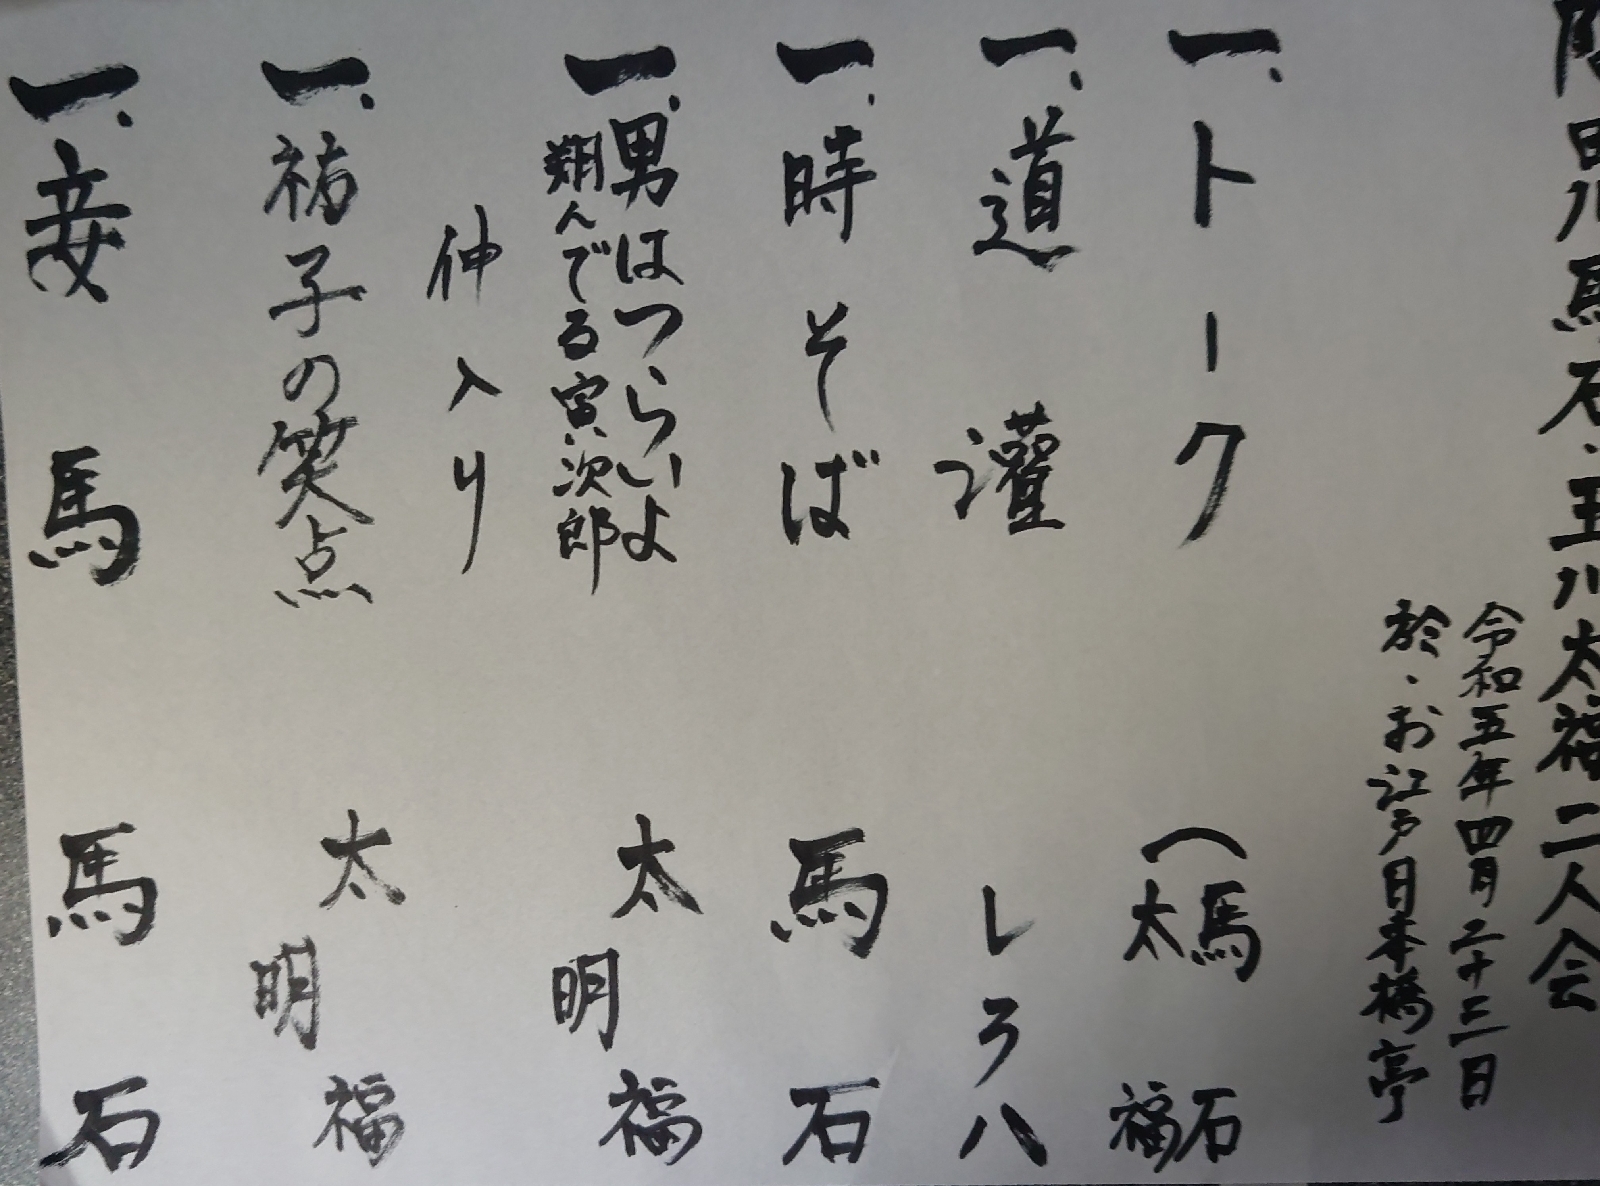 隅田川馬石・玉川太福二人会
令和五年四月二十三日
於・お江戸日本橋亭
一、トーク（馬石 太福
一、道灌 しろ八
一、時そば 馬石
一、男はつらいよ 翔んでる寅次郎 太福 明
仲入り
一、祐子の笑点 太福 明
一、妾馬 馬石